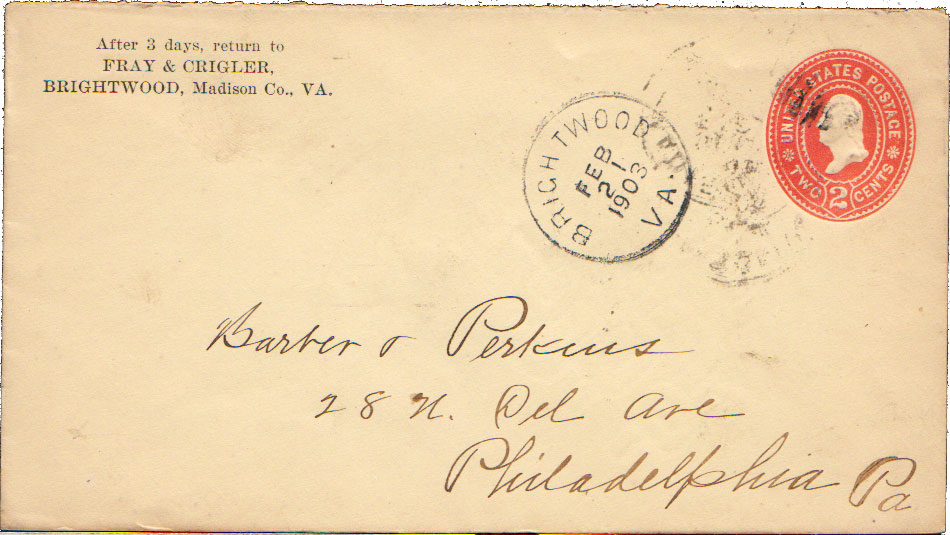 After 3 days, return to
FRAY & CRIGLER,
BRIGHTWOOD, Madison Co., VA.
BRIGHTWOOD VA.
FEB
21
1903
UNITED STATES POSTAGE
TWO 2 CENTS
Barber & Perkins
28 N. Del Ave
Philadelphia Pa